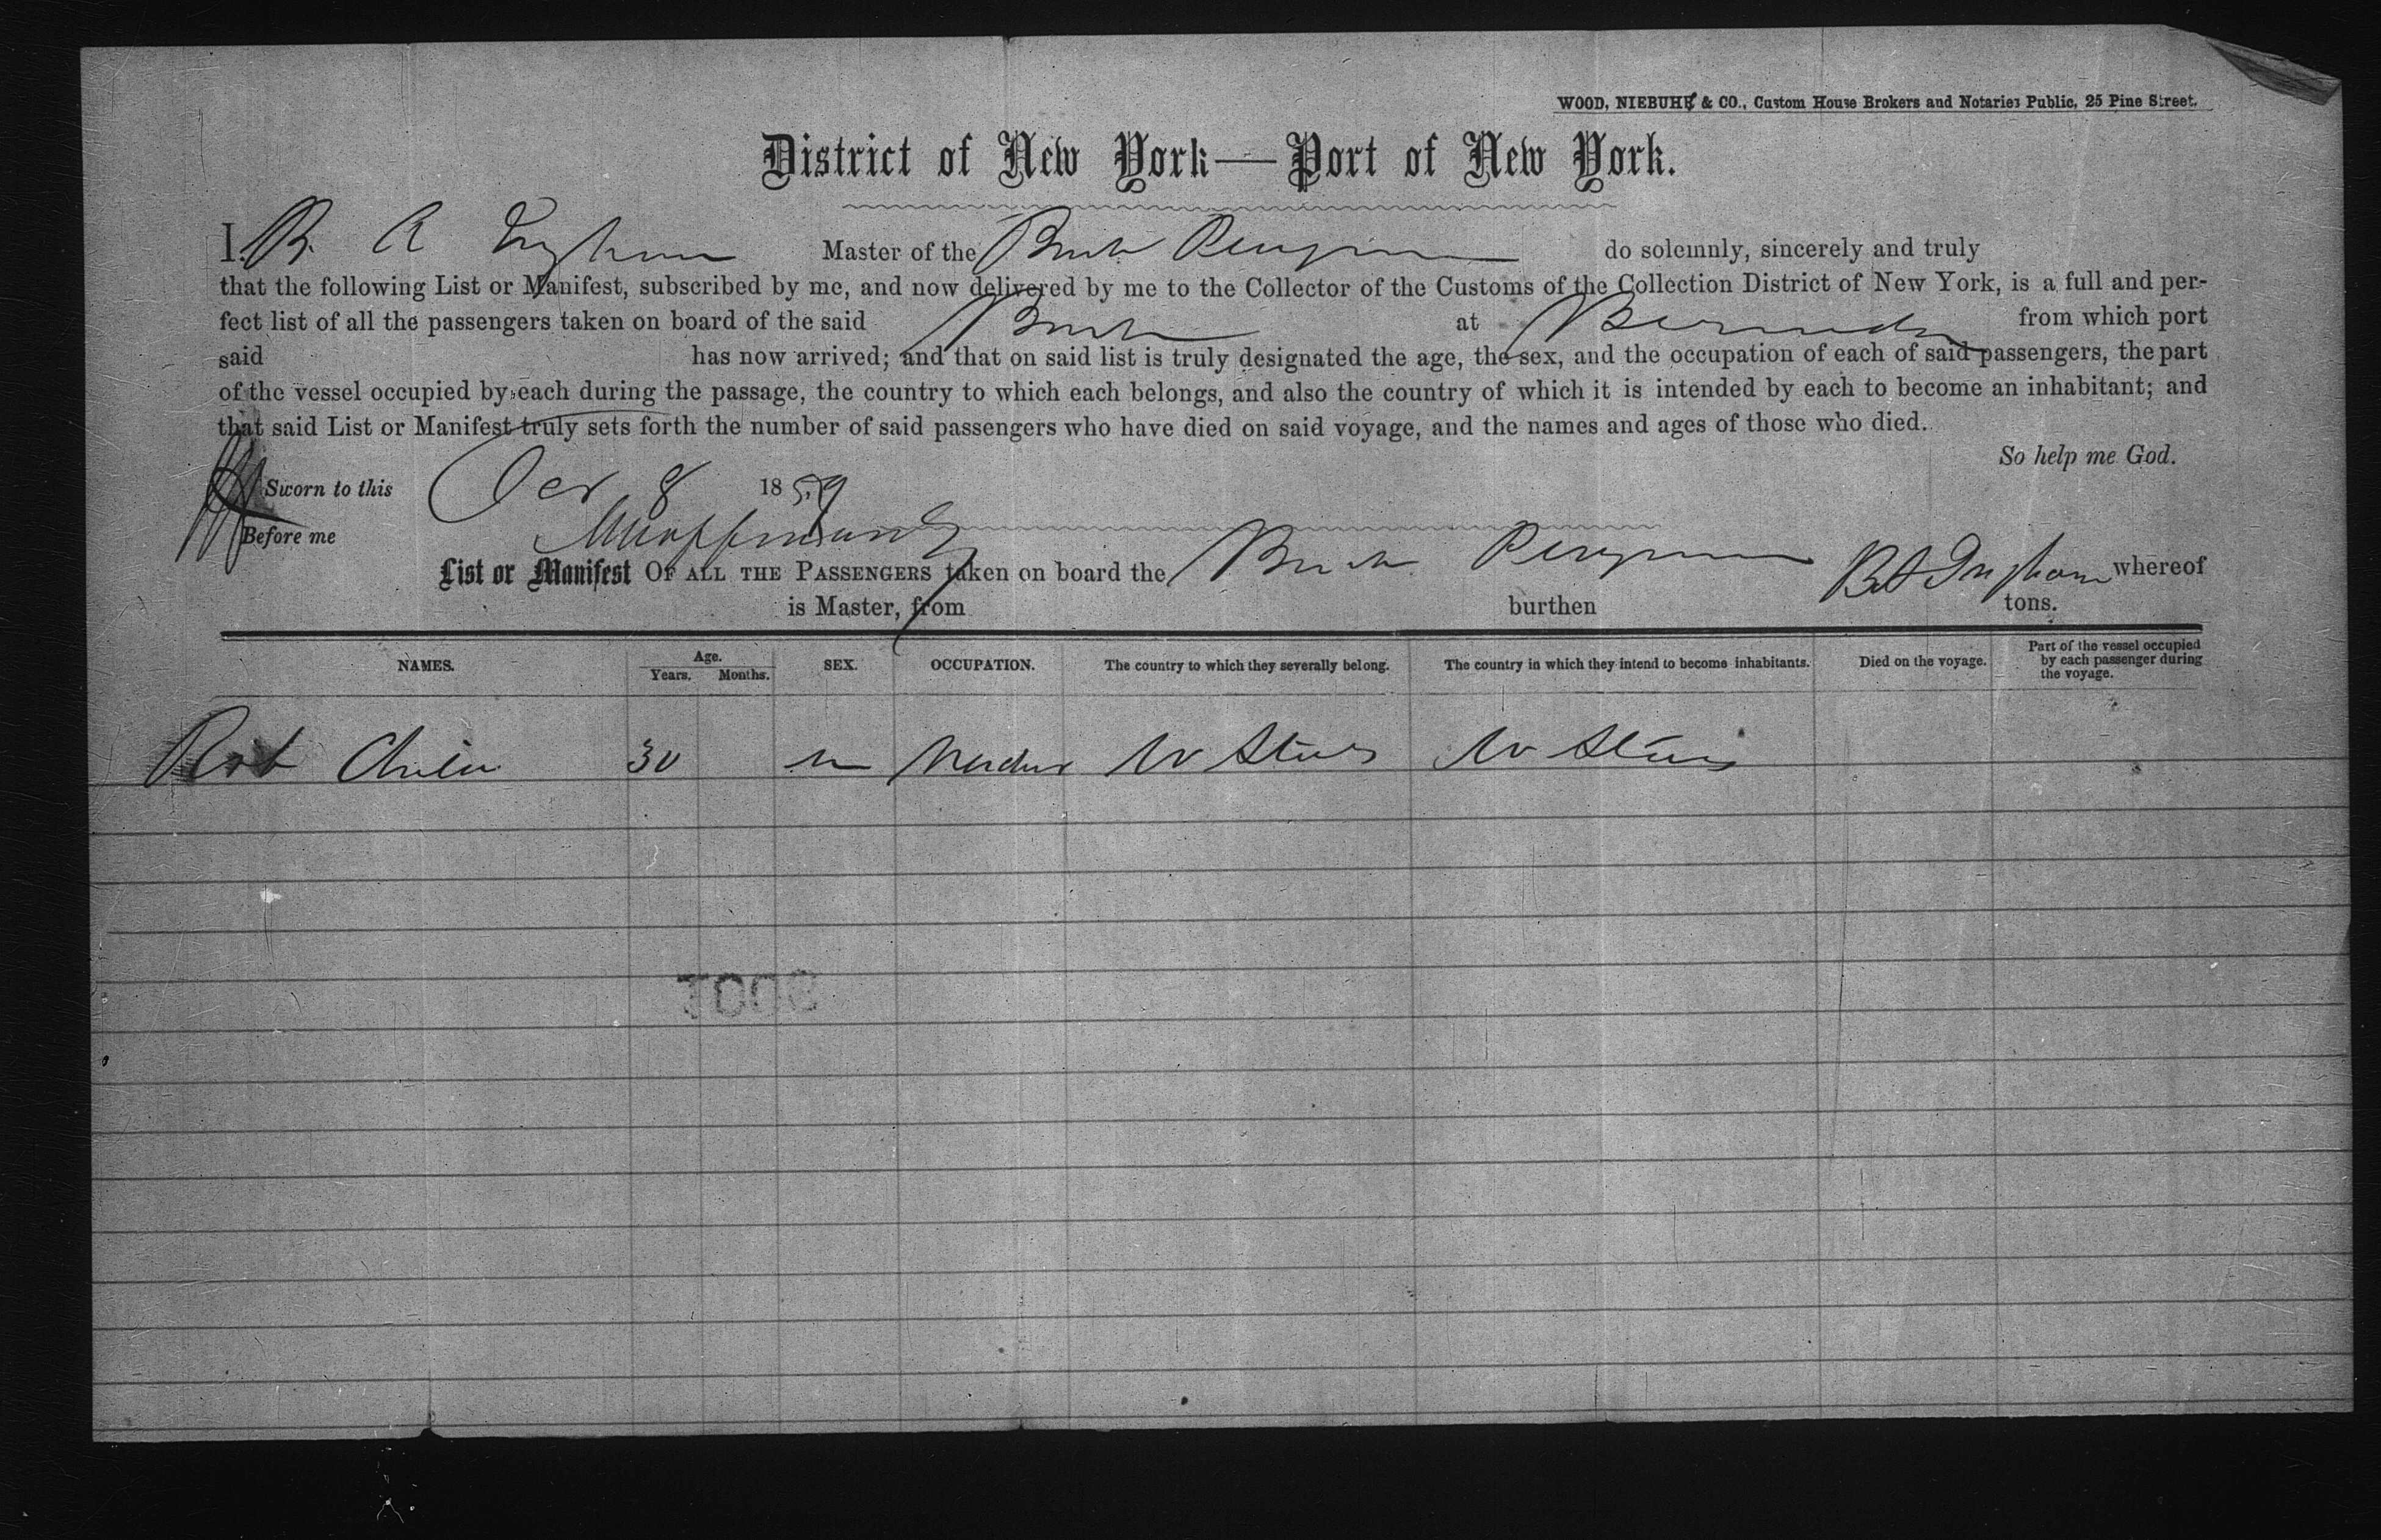 WOOD, NIEBUHR & CO., Custom House Brokers and Notaries Public, 25 Pine Street.
District of New York—Port of New York.
I, B. A Ingham Master of the do solemnly, sincerely and truly
that the following List or Manifest, subscribed by me, and now delivered by me to the Collector of the Customs of the Collection District of New York, is a full and per-
fect list of all the passengers taken on board of the said at Bermuda from which port
said has now arrived; and that on said list is truly designated the age, the sex, and the occupation of each of said passengers, the part
of the vessel occupied by each during the passage, the country to which each belongs, and also the country of which it is intended by each to become an inhabitant; and
that said List or Manifest truly sets forth the number of said passengers who have died on said voyage, and the names and ages of those who died.
So help me God.
Sworn to this Oct 8 1859
Before me
List or Manifest OF ALL THE PASSENGERS taken on board the B A Ingham whereof
is Master, from burthen tons.
NAMES. Age. Years. Months. SEX. OCCUPATION. The country to which they severally belong. The country in which they intend to become inhabitants. Died on the voyage. Part of the vessel occupied by each passenger during the voyage.
Rob 30 m U States U States